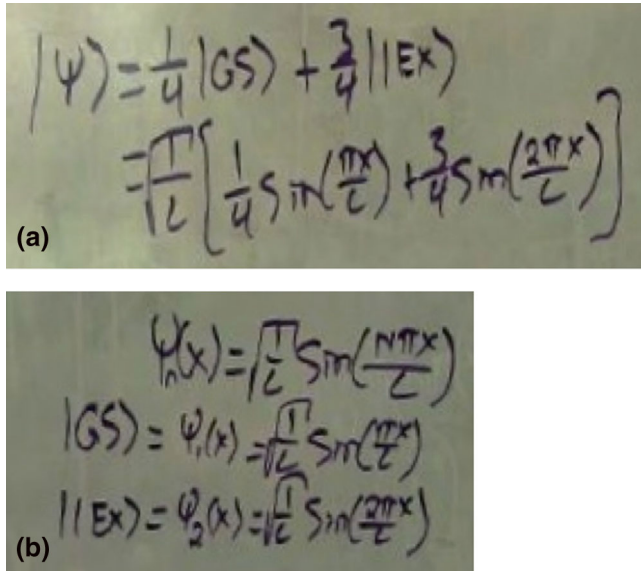 |ψ⟩ = 1/4 |GS⟩ + 3/4 |1EX⟩
= √(1/L) [ 1/4 Sin(πx/L) + 3/4 Sin(2πx/L) ]
(a)
ψₙ(x) = √(1/L) Sin(Nπx/L)
|GS⟩ = ψ₁(x) = √(1/L) Sin(πx/L)
|1EX⟩ = ψ₂(x) = √(1/L) Sin(2πx/L)
(b)